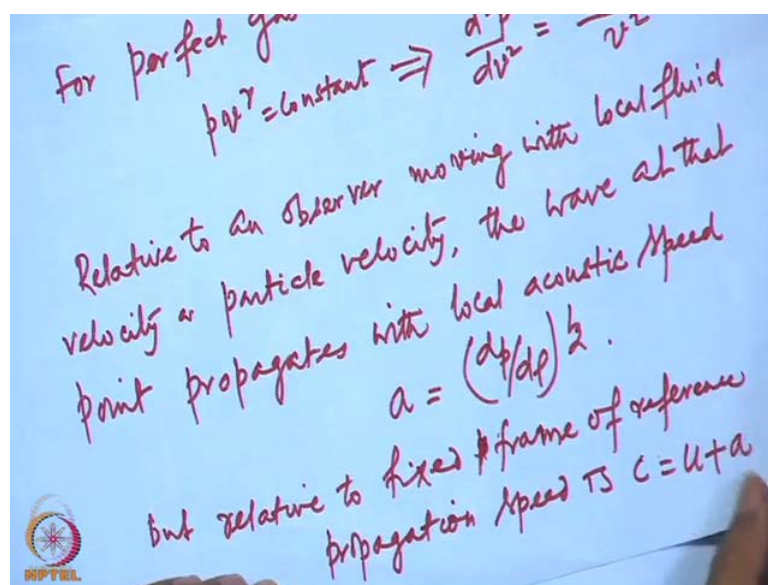 For perfect gas
pv^γ = constant ⇒ d²p/dv² = /v²
Relative to an observer moving with local fluid
velocity or particle velocity, the wave at that
point propagates with local acoustic speed
a = (dp/dρ)^½.
But relative to fixed frame of reference
propagation speed is c = u + a
NPTEL